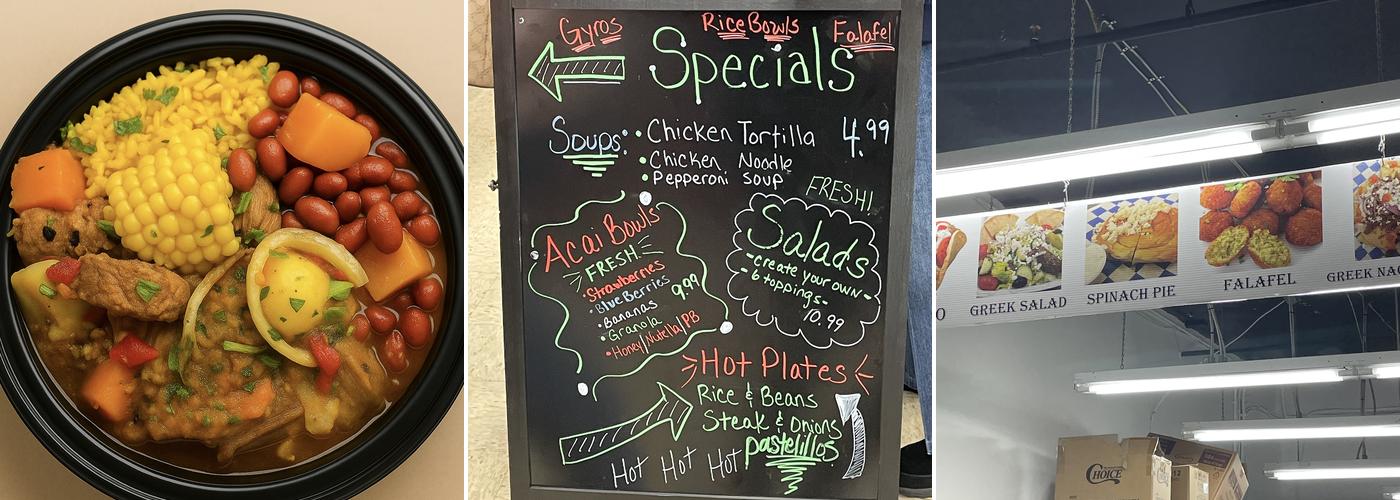 Gyros
Rice Bowls
Falafel
Specials
Soups: • Chicken Tortilla 4.99
• Chicken Noodle
• Pepperoni Soup
FRESH!
Acai Bowls
FRESH!
• Strawberries
• BlueBerries 9.99
• Bananas
• Granola
• Honey/Nutella/PB
Salads
- create your own -
- 6 toppings -
10.99
Hot Plates
Rice & Beans
Steak & Onions
pastelillos
Hot Hot Hot
GREEK SALAD
SPINACH PIE
FALAFEL
GREEK
CHOICE